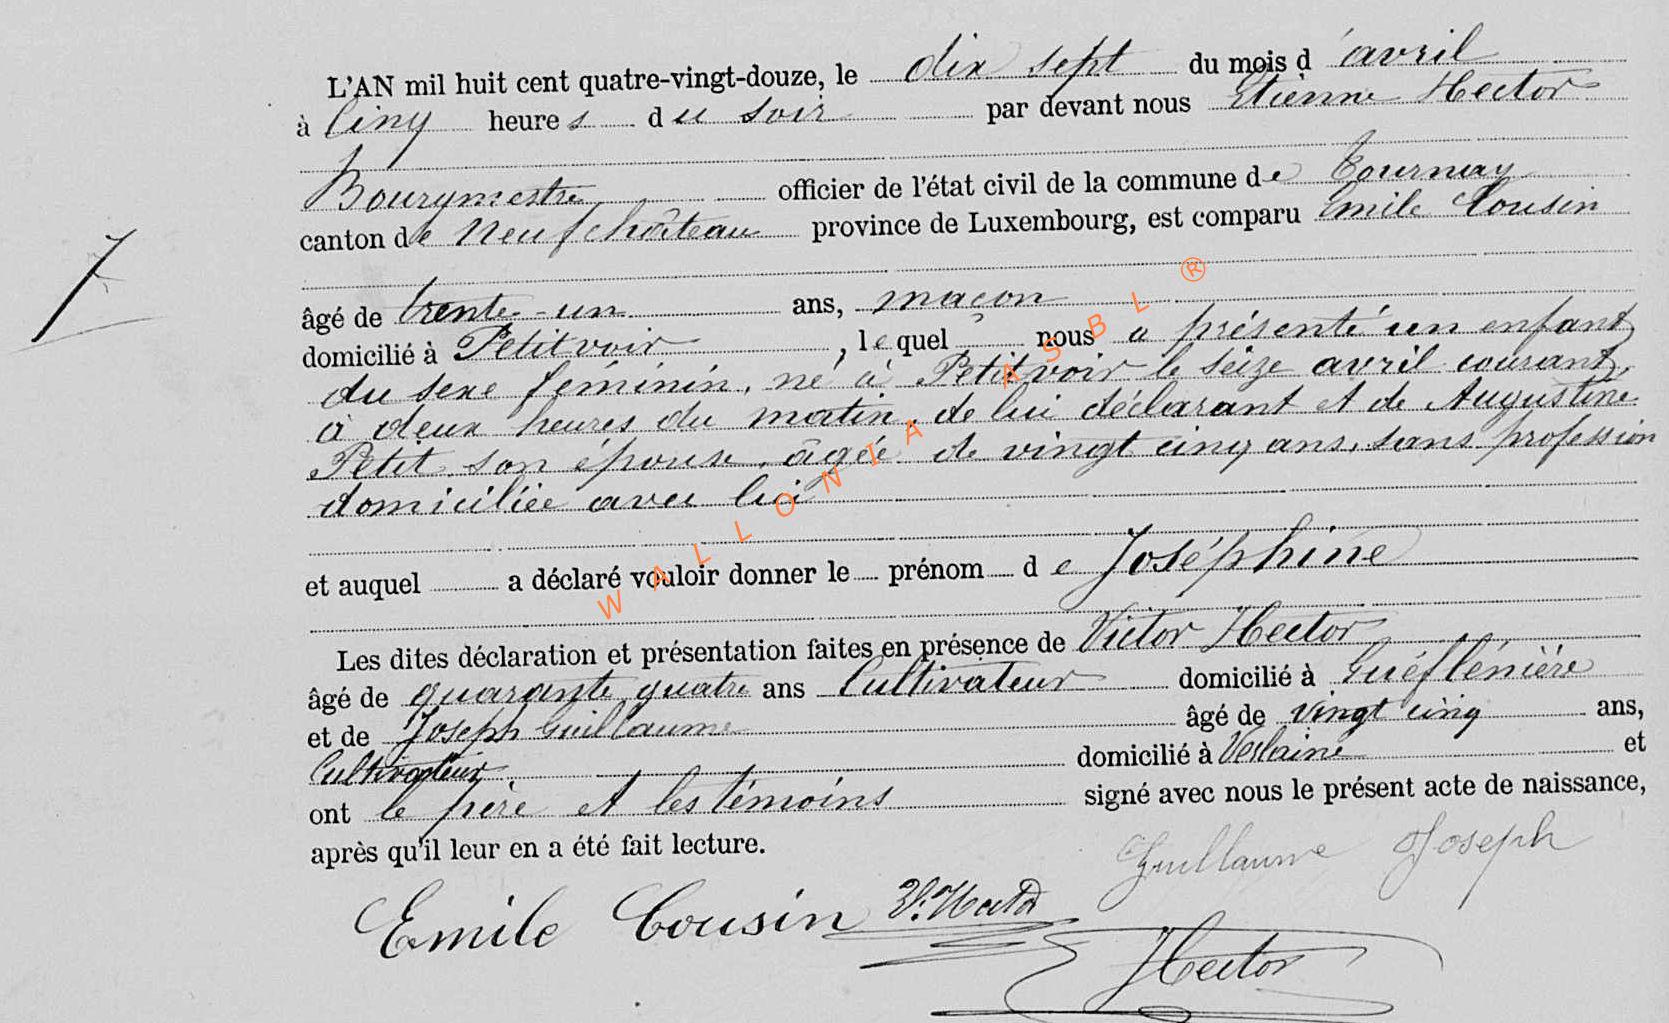 L'AN mil huit cent quatre-vingt-douze, le dix sept du mois d'avril
à cinq heures du soir par devant nous Etienne Hector
Bourgmestre officier de l'état civil de la commune de Tournay
canton de Neufchâteau province de Luxembourg, est comparu Emile Cousin
âgé de trente-un ans, maçon
domicilié à Petitvoir, lequel nous a présenté un enfant
du sexe féminin, né à Petitvoir le seize avril courant,
à deux heures du matin, de lui déclarant et de Augustine
Petit son épouse, âgée de vingt cinq ans, sans profession
domiciliée avec lui
et auquel a déclaré vouloir donner le prénom de Joséphine
Les dites déclaration et présentation faites en présence de Victor Hector
âgé de quarante quatre ans Cultivateur domicilié à
et de Joseph Guillaume âgé de vingt cinq ans,
Cultivateur domicilié à Verlaine et
ont le père et les témoins signé avec nous le présent acte de naissance,
après qu'il leur en a été fait lecture.
Guillaume Joseph
Emile Cousin V. Hector
Hector
7
WALLONIA ASBL ®